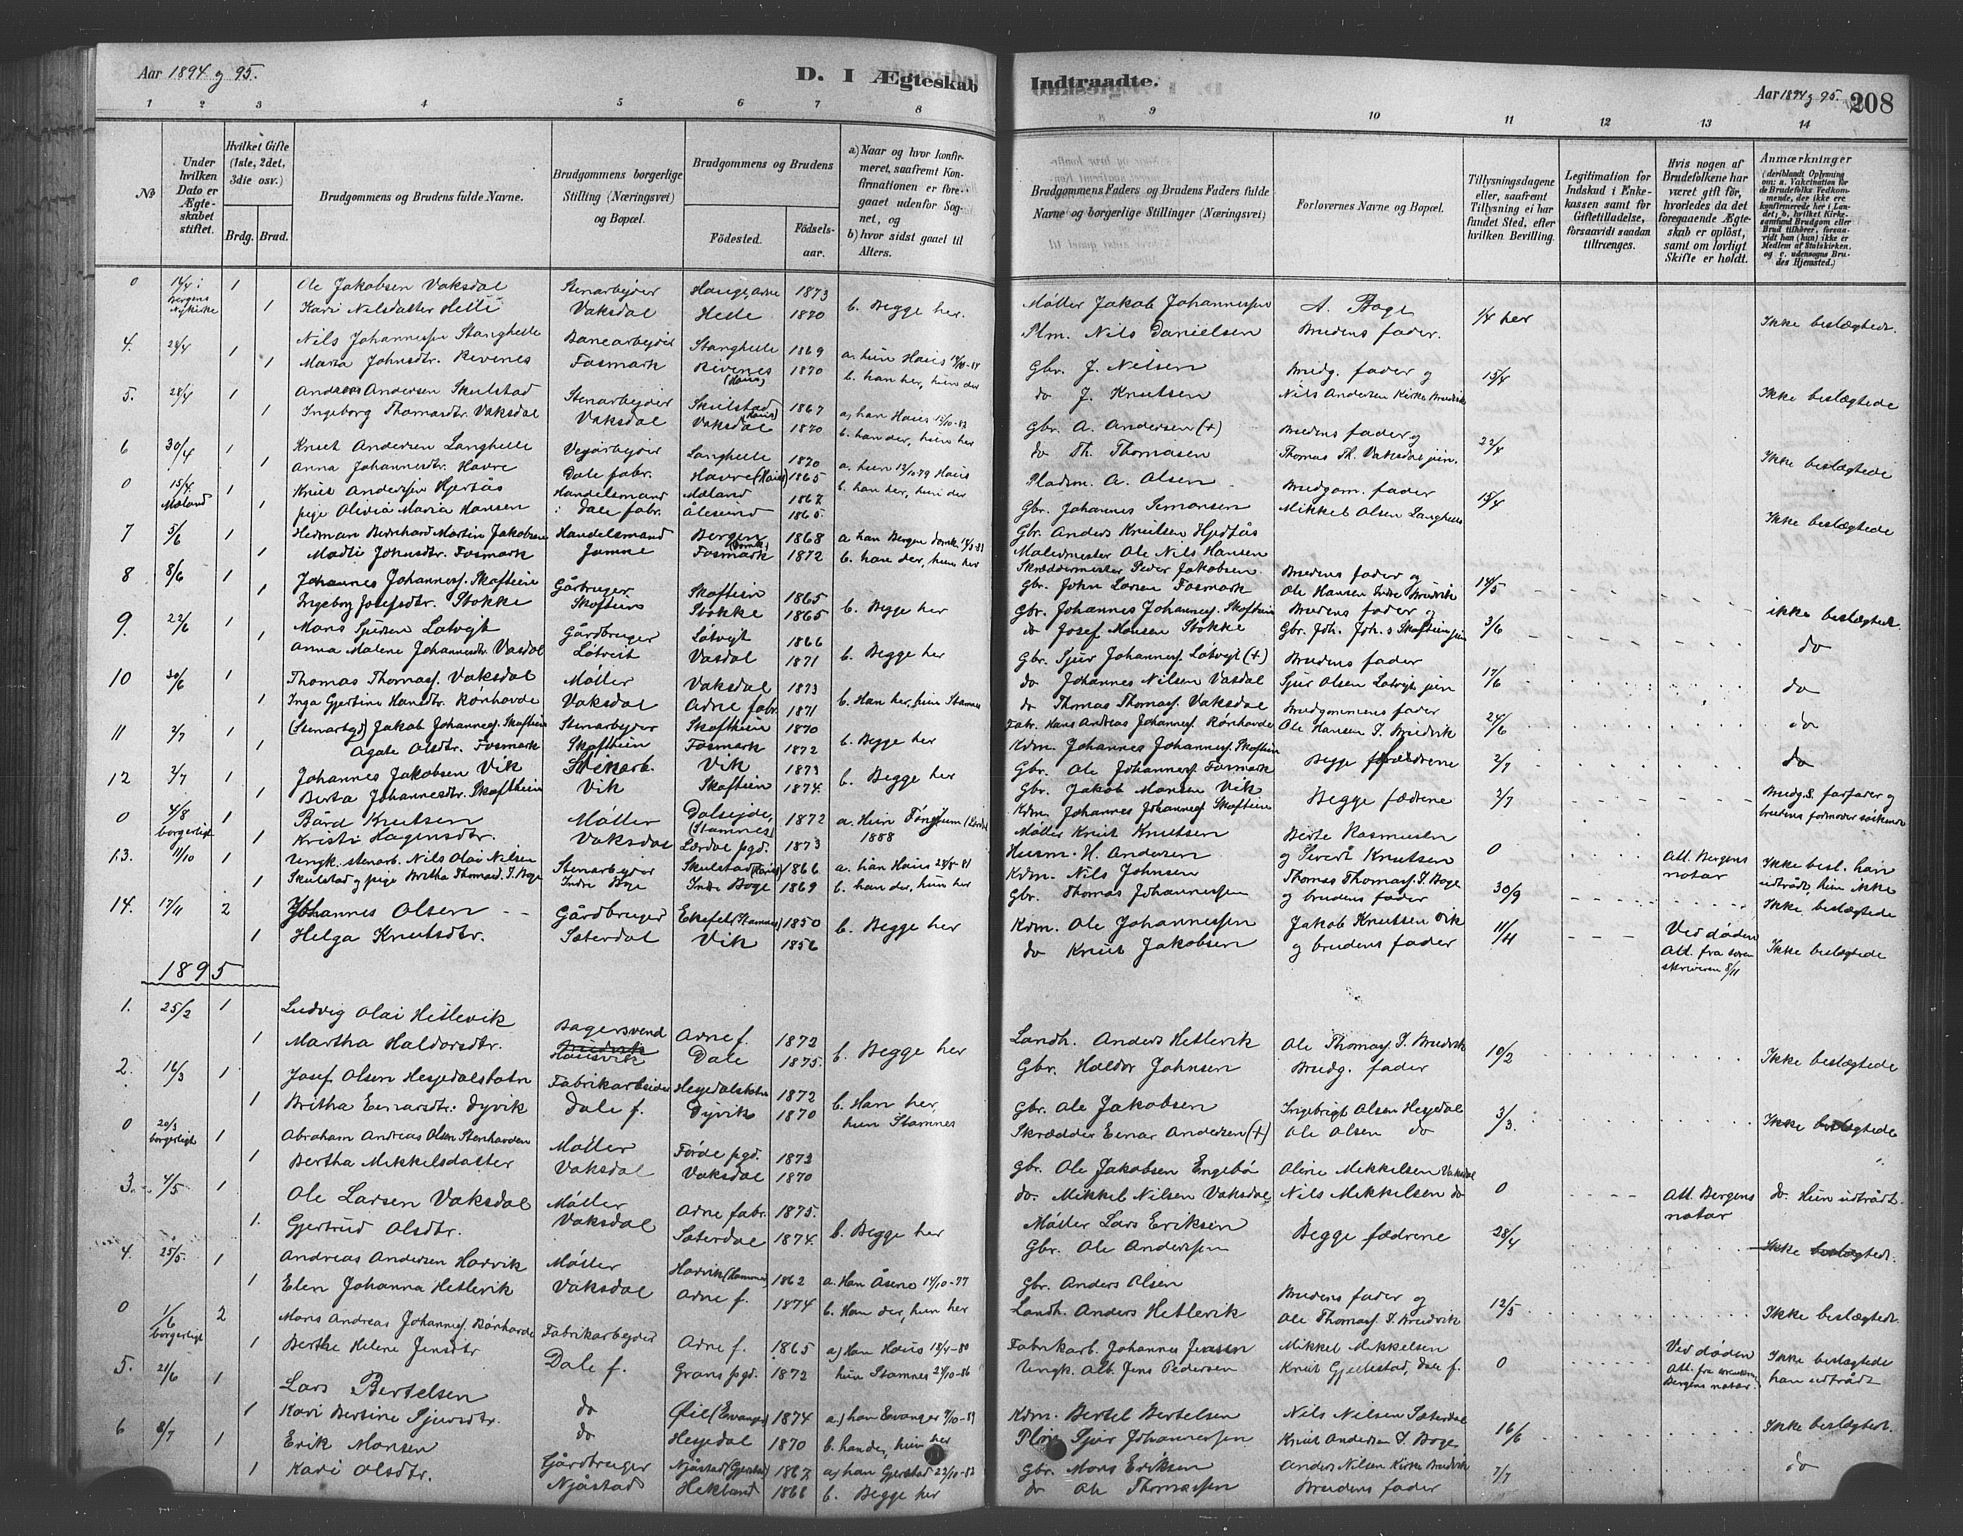 Aar 1894 g 95.
D. I Ægteskab
Indtraadte.
Aar 1894 g 95.
208
1 2 3 4 5 6 7 8
9 10 11 12 13 14
No
Under hvilken Dato er Ægteskabet stiftet.
Hvilket Gifte (1ste, 2det, 3die osv.)
Brdg. Brud.
Brudgommens og Brudens fulde Navne.
Brudgommens borgerlige Stilling (Næringsvei) og Bopæl.
Brudgommens og Brudens
Fødested.
Fødselsaar.
a) Naar og hvor konfirmeret, saafremt Konfirmationen er foregaaet udenfor Sognet, og
b) hvor sidst gaaet til Alters.
Brudgommens Faders og Brudens Faders fulde Navne og borgerlige Stillinger (Næringsvei)
Forlovernes Navne og Bopæl.
Tillysningsdagene eller, saafremt Tillysning ei har fundet Sted, efter hvilken Bevilling.
Legitimation for Indskud i Enkekassen samt for Giftetilladelse, forsaavidt saadan tiltrænges.
Hvis nogen af Brudefolkene har været gift før, hvorledes da det foregaaende Ægteskab er opløst, samt om lovligt Skifte er holdt.
Anmærkninger
(deriblandt Oplysning om: a. Vakcination for de Brudefolks Vedkommende, der ikke ere konfirmerede her i Landet; b. hvilket Kirkesamfund Brudgom eller Brud tilhører, forsaavidt han (hun) ikke er Medlem af Statskirken, og c. udensogns Brudes Hjemsted.)
0 14/4 i Bergens Nykirke 1 Ole Jakobsen Vaksdal Stenarbejder Hauge, Arne 1873 Møller Jakob Johannessen A. Boge 1/4 her
1 Kari Nilsdatter Helle Vaksdal Helle 1870 b. Begge her. Plm. Nils Danielsen Brudens fader. Ikke beslægtede.
4. 28/4 1 Nils Johannessen Stanghelle Banearbejder Stanghelle 1869 a. hun Haus Gbr. J. Nilsen Brudg. fader og 15/4
1 Marta Johnsdtr. Rivenes Fosmark Rivenes (Haus) 1870 b. han her, hun der do J. Knutsen Nils Andersen Kirke Brudvik Ikke beslægtede
5. 28/4 1 Anders Andersen Skulstad Stenarbejder Skulstad (Haus) 1867 a, han Haus Gbr. A. Andersen (+) Brudens fader og 22/4
1 Ingeborg Thomasdtr. Vaksdal Vaksdal Vaksdal 1870 b. han der, hun her do Th. Thomasen Thomas Th. Vaksdal jun. Ikke beslægtede
6 30/4 1 Knut Andersen Langhelle Vejarbejder Langhelle 1870 a. hun Haus Pladsm. A. Olsen Brudgom. fader 15/4
1 Anna Johannesdtr. Havre Dale fabr. Havre (Haus) 1865 b. han her, hun der Gbr. Johannes Simonsen Mikkel Olsen Langhelle Ikke beslægtede
0 15/4 Mæland 1 Knut Andersen Hjertås Handelsmand Mæland 1867 Gbr. Anders Knutsen Hjertås
1 pige Olivia Maria Hansen i Dale fabr. Ålesund 1865. Malermester Ole Nils Hansen
7 5/6 1 Herman Bernhard Martin Jakobsen Handelsmand Bergen 1868 a han Bergen Skræddermester Peder Jakobsen Brudens fader og 14/5
1 Madli Johnsdtr. Fosmark Fosmark 1872 b. han der, hun her Gbr. John Larsen Fosmark Ole Hansen Indre Brudvik ikke beslægtet.
8 8/6 1 Johannes Johannes. Skaftun Gårbruger 1865 Gbr. Johannes Johannes. Brudens fader og 3/6
1 Ingeborg Josefsdtr. Stokke Stokke 1865 b. Begge her do Josef Monsen Stokke Gbr. Joh. Joh.s do
9. 22/6 1 Mons Sjursen Gårdbruger 1866 Gbr. Sjur Johannes. (+) Brudens fader 17/6
1 Anna Malene Johannesdtr. Vasdal Vasdal 1871 b. Begge her do Johannes Nilsen Vasdal Sjur Olsen jun do
10 30/6 1 Thomas Thomas. Vaksdal Møller Vaksdal 1873 do Thomas Thomas. Vaksdal Brudgommens fader 24/6
1 Inga Gjertine Hansdtr. Rønhovde Vaksdal Arne fabr. 1871 b. Han her, hun Stamnes Fabr. Hans Andreas Johannes. Rønhovde Ole Hansen I. Brudvik do
11 2/7 1 (Stenarbejd) Jakob Johannes. Stenarbejder 1870 Kdm. Johannes Johannes. Begge forældrene 2/7
1 Agate Olsdtr. Fosmark Fosmark 1872 b. Begge her Gbr. Ole Johannes. Fosmark do
12 3/7 1 Johannes Jakobsen Vik Stenarb. Vik 1873 Gbr. Jakob Monsen Vik Begge fædrene 2/7
1 Berta Johannesdtr. Vik 1874. b. Begge her Kdm. Johannes Johannes. Brudg.s farfader og brudens
0 4/8 borgerligt 1 Bård Knutsen Møller Dalseide, (Stamnes) 1872 a. Hun 1888 Møller Knut Knutsen Berte Rasmusen 0
1 Kristi Hagensdtr. Vaksdal Lærdal pgd. 1873 Husm. H. Andersen og Sivert Knutsen Att. Bergens notar Ikke besl. han udtrådt, hun ikke
13. 11/10 1 Ungk. stenarb. Nils Olai Nilsen Stenarbejder Skulstad (Haus) 1866 a. han Haus Kdm. Nils Johnsen Thomas Thomas. I. Boge 30/9
1 Skulstad og pige Britha Thomasd. I. Boge Indre Boge Indre Boge 1869 b. han der, hun her Gbr. Thomas Johannessen og brudens fader Ikke beslægtede
14. 17/11 2 Johannes Olsen Gårdbruger 1850 Kdm. Ole Johannessen Jakob Knutsen Vik 11/11 Ved døden
1 Helga Knutsdtr. Sæterdal Vik 1856 b. Begge her do Knut Jakobsen og brudens fader Att. fra sorenskriveren 8/11 Ikke beslægtede
1895
1. 25/2 1 Ludvig Olai Hetlevik Bagersvend Arne f. 1872 Landh. Anders Hetlevik Ole Thomas. I. Brudvik 10/2
1 Martha Haldorsdtr. Hausvik Dale 1875. b. Begge her Gbr. Haldor Johnsen Brudg. fader Ikke beslægtede
2. 16/3 1 Josef Olsen Hesjedalstøtn Fabrikarbeider 1872 b. Han her, Gbr. Ole Jakobsen Ingebrigt Olsen Hesjedal 3/3.
1 Britha Einarsdtr. Dyvik Dale f. Dyvik 1870 hun Stamnes Skrædder Einar Andersen (+) Ole Olsen do Ikke beslægtede
0 20/3 borgerligt 1 Abraham Andreas Olsen Møller Førde pgd. 1873 Gbr. Ole Jakobsen Engebø Oline Mikkelsen Vaksdal
1 Bertha Mikkelsdatter Vaksdal Vaksdal 1870 do. Mikkel Nilsen Vaksdal Nils Mikkelsen do 0 Att. Bergens notar do. Hun udtrådt
3. 4/5 1 Ole Larsen Vaksdal Møller Arne fabr. 1875. Møller Lars Eriksen Begge fædrene 28/4
1. Gjertrud Olsdtr. Vaksdal Sæterdal 1874. b. Begge her Gbr. Ole Anderssen Ikke beslægtet.
4. 25/5 1 Andreas Andersen Horvik Møller Horvik 1862 a. Han Åsene 14/10-77 Gbr. Anders Olsen Brudens fader og 12/5
1 Elen Johanna Hetlevik Vaksdal Arne f. 1874 b. Han der, hun her Landh. Anders Hetlevik Ole Thomas. I. Brudvik Ikke beslægtet.
0 1/6 borgerligt 2 Mons Andreas Johannes. Rønhovde Fabrikarbejder Arne f. 1865 a) Han Haus Fabrikarb. Johannes Jenssen Mikkel Mikkelsen Ved døden
1 Berthe Helene Jensdtr Dale f. Grans pgd. 1872 hun Stamnes Ungk. Alb. Jens Pedersen Knut Gjellestad, Dale f. 0 Att. fra Bergens notar. Ikke beslægtede han udtrådt
5. 21/6 1 Lars Bertelsen do (Evanger) 1874 a.) han Evanger Kdm. Bertel Bertelsen Nils Nilsen Sæterdal 16/6
1 Kari Bertine Sjursdtr. do Hesjedal 1870 b. han der, hun her Sjur Johannessen Knut Andersen I. Boge Ikke beslægtet.
6 8/7 1 Erik Monsen Gårdbruger Njåstad 1867. a) han Gjerstad Gbr. Mons Eriksen Anders Nilsen Kirke Brudvik 7/7
1 Kari Olsdtr. Njåstad Hekland 1868 b. Begge her do Ole Thomassen Brudens fader do